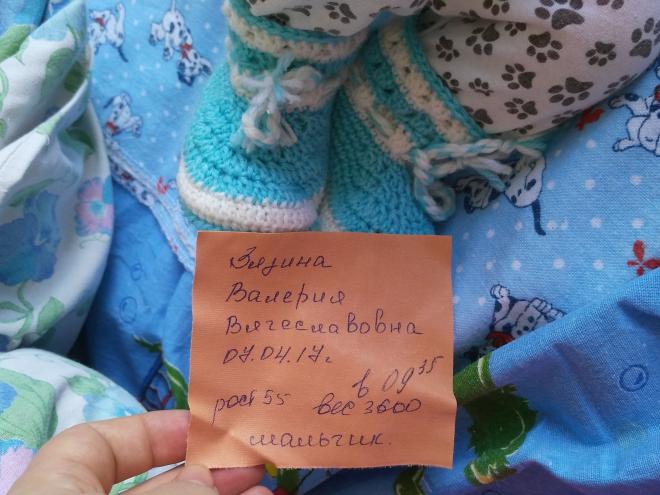 Вязина
Валерия
Вячеславовна
07.04.17г
в 09 35
рост 55 вес 3600
мальчик.